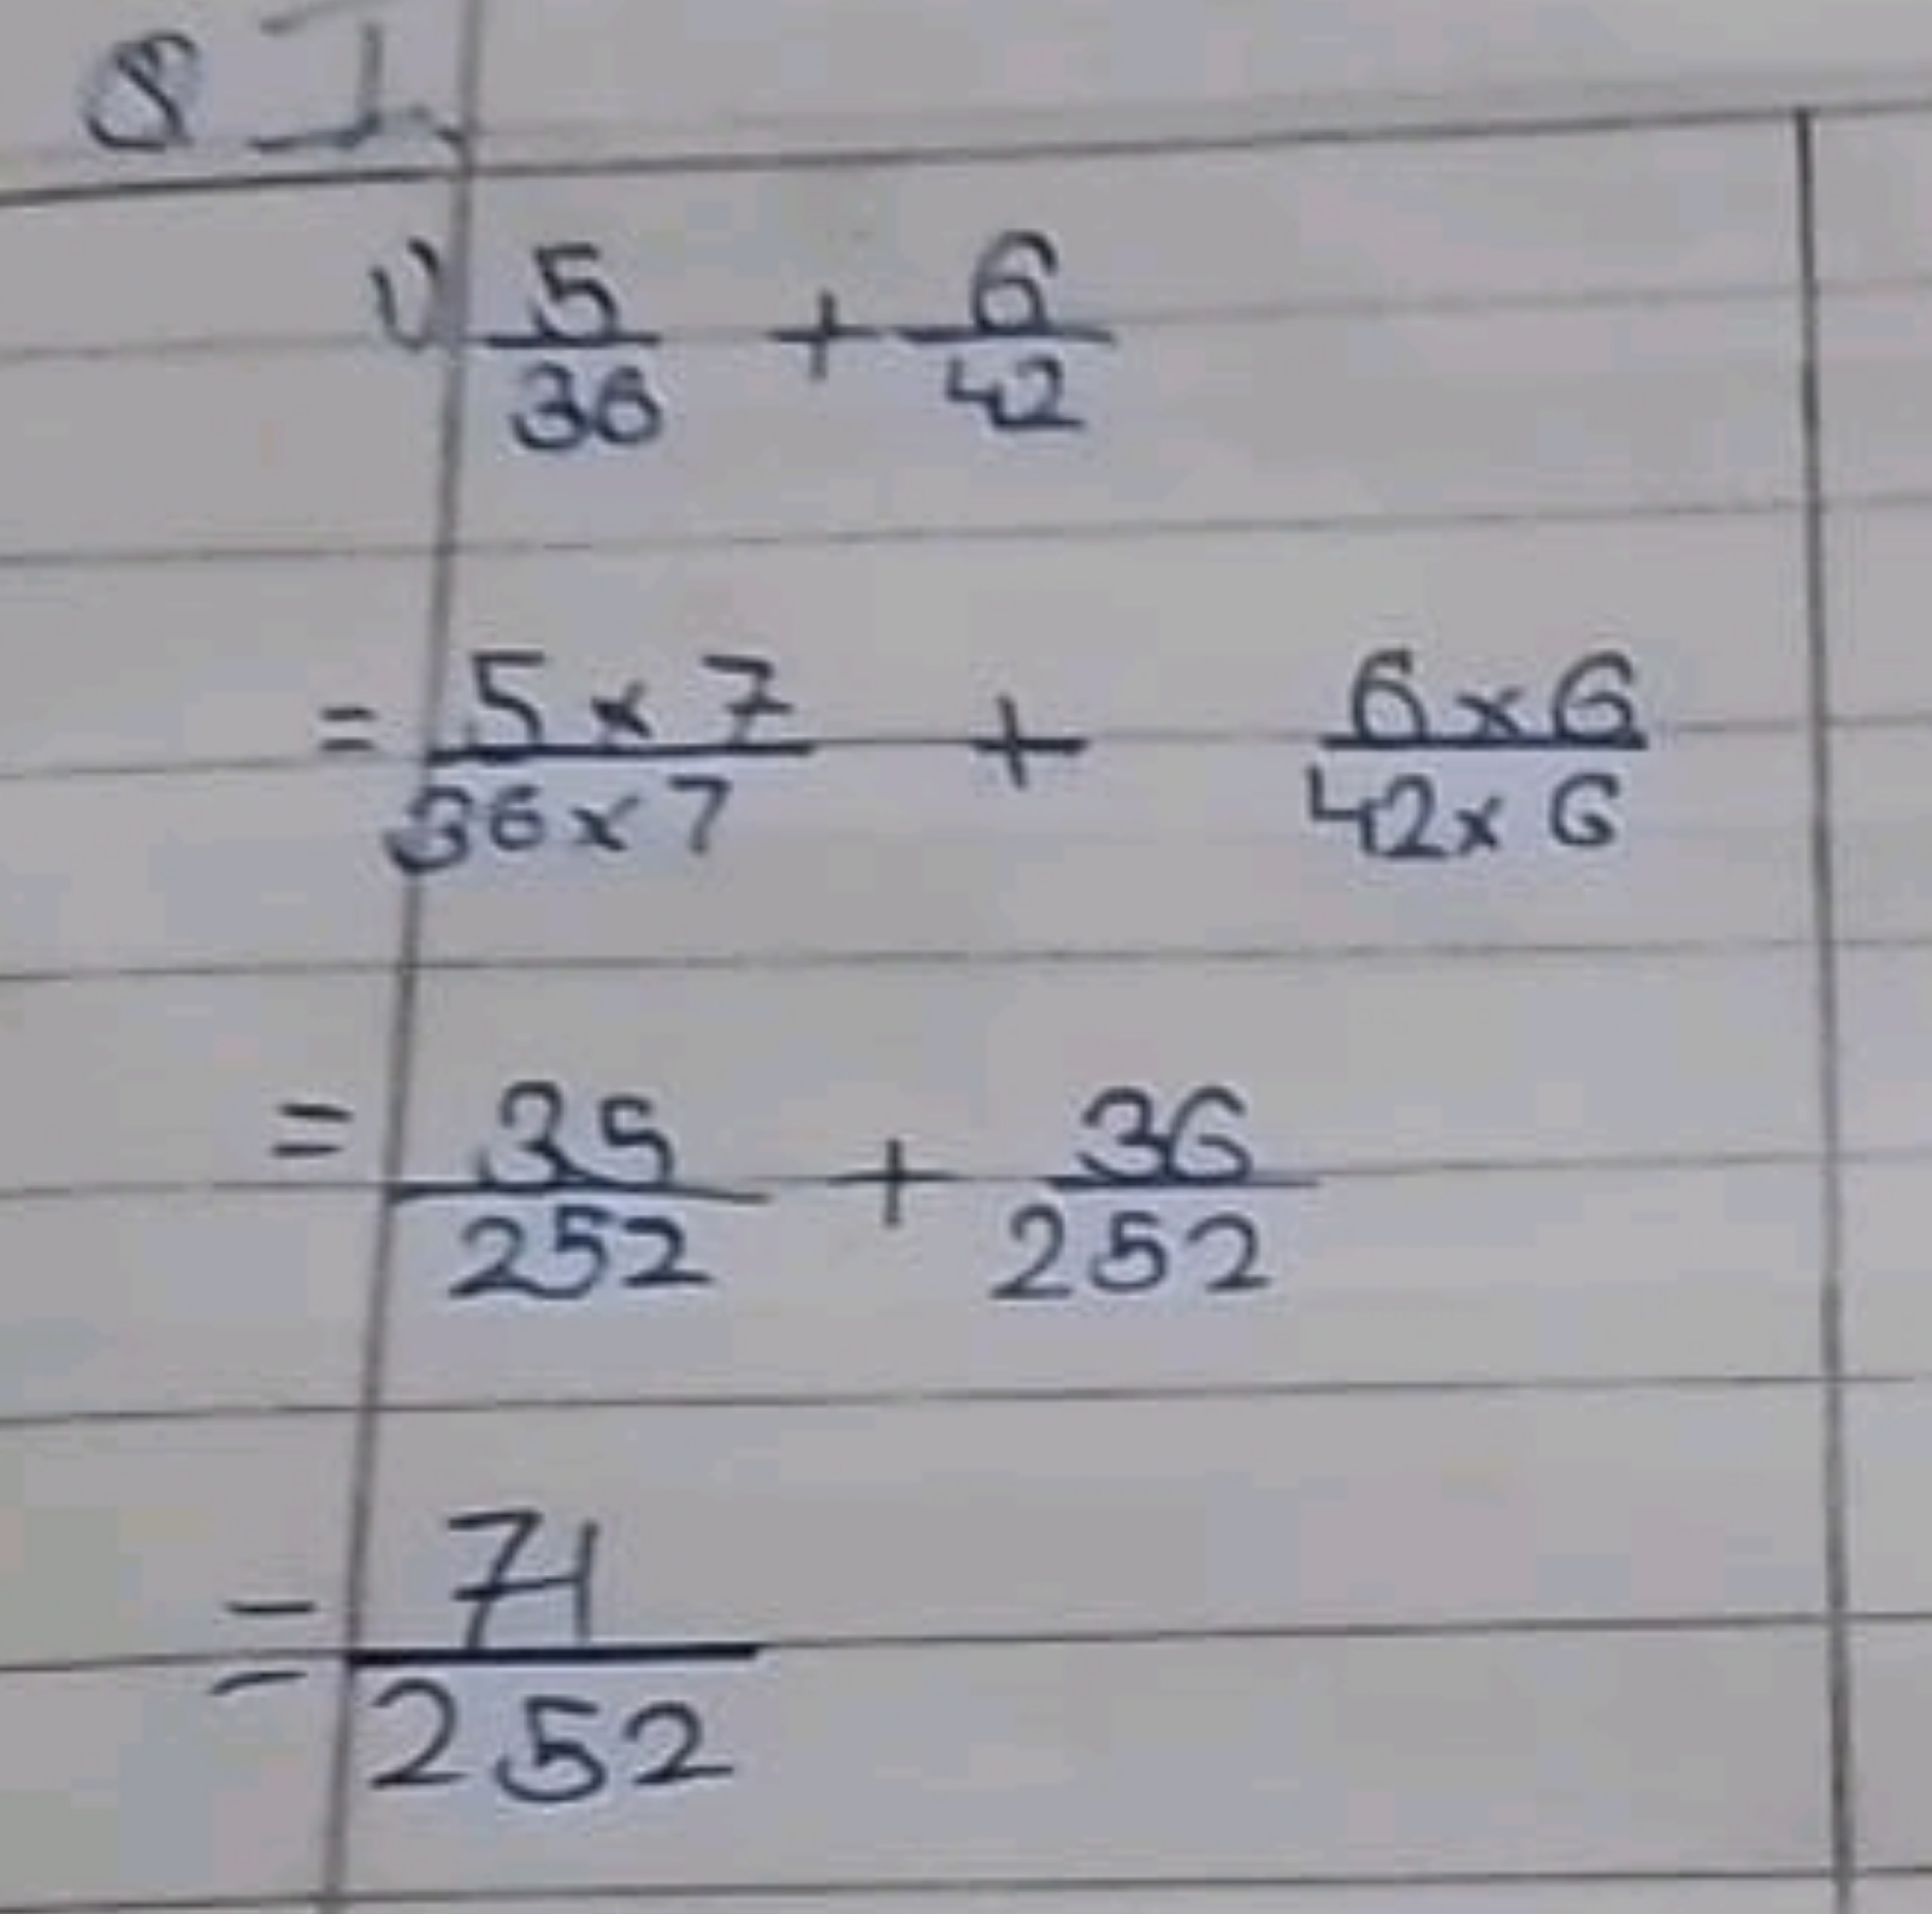 Q 1.
1) 5/36 + 6/42
= 5 × 7/36 × 7 + 6 × 6/42 × 6
= 35/252 + 36/252
= 71/252